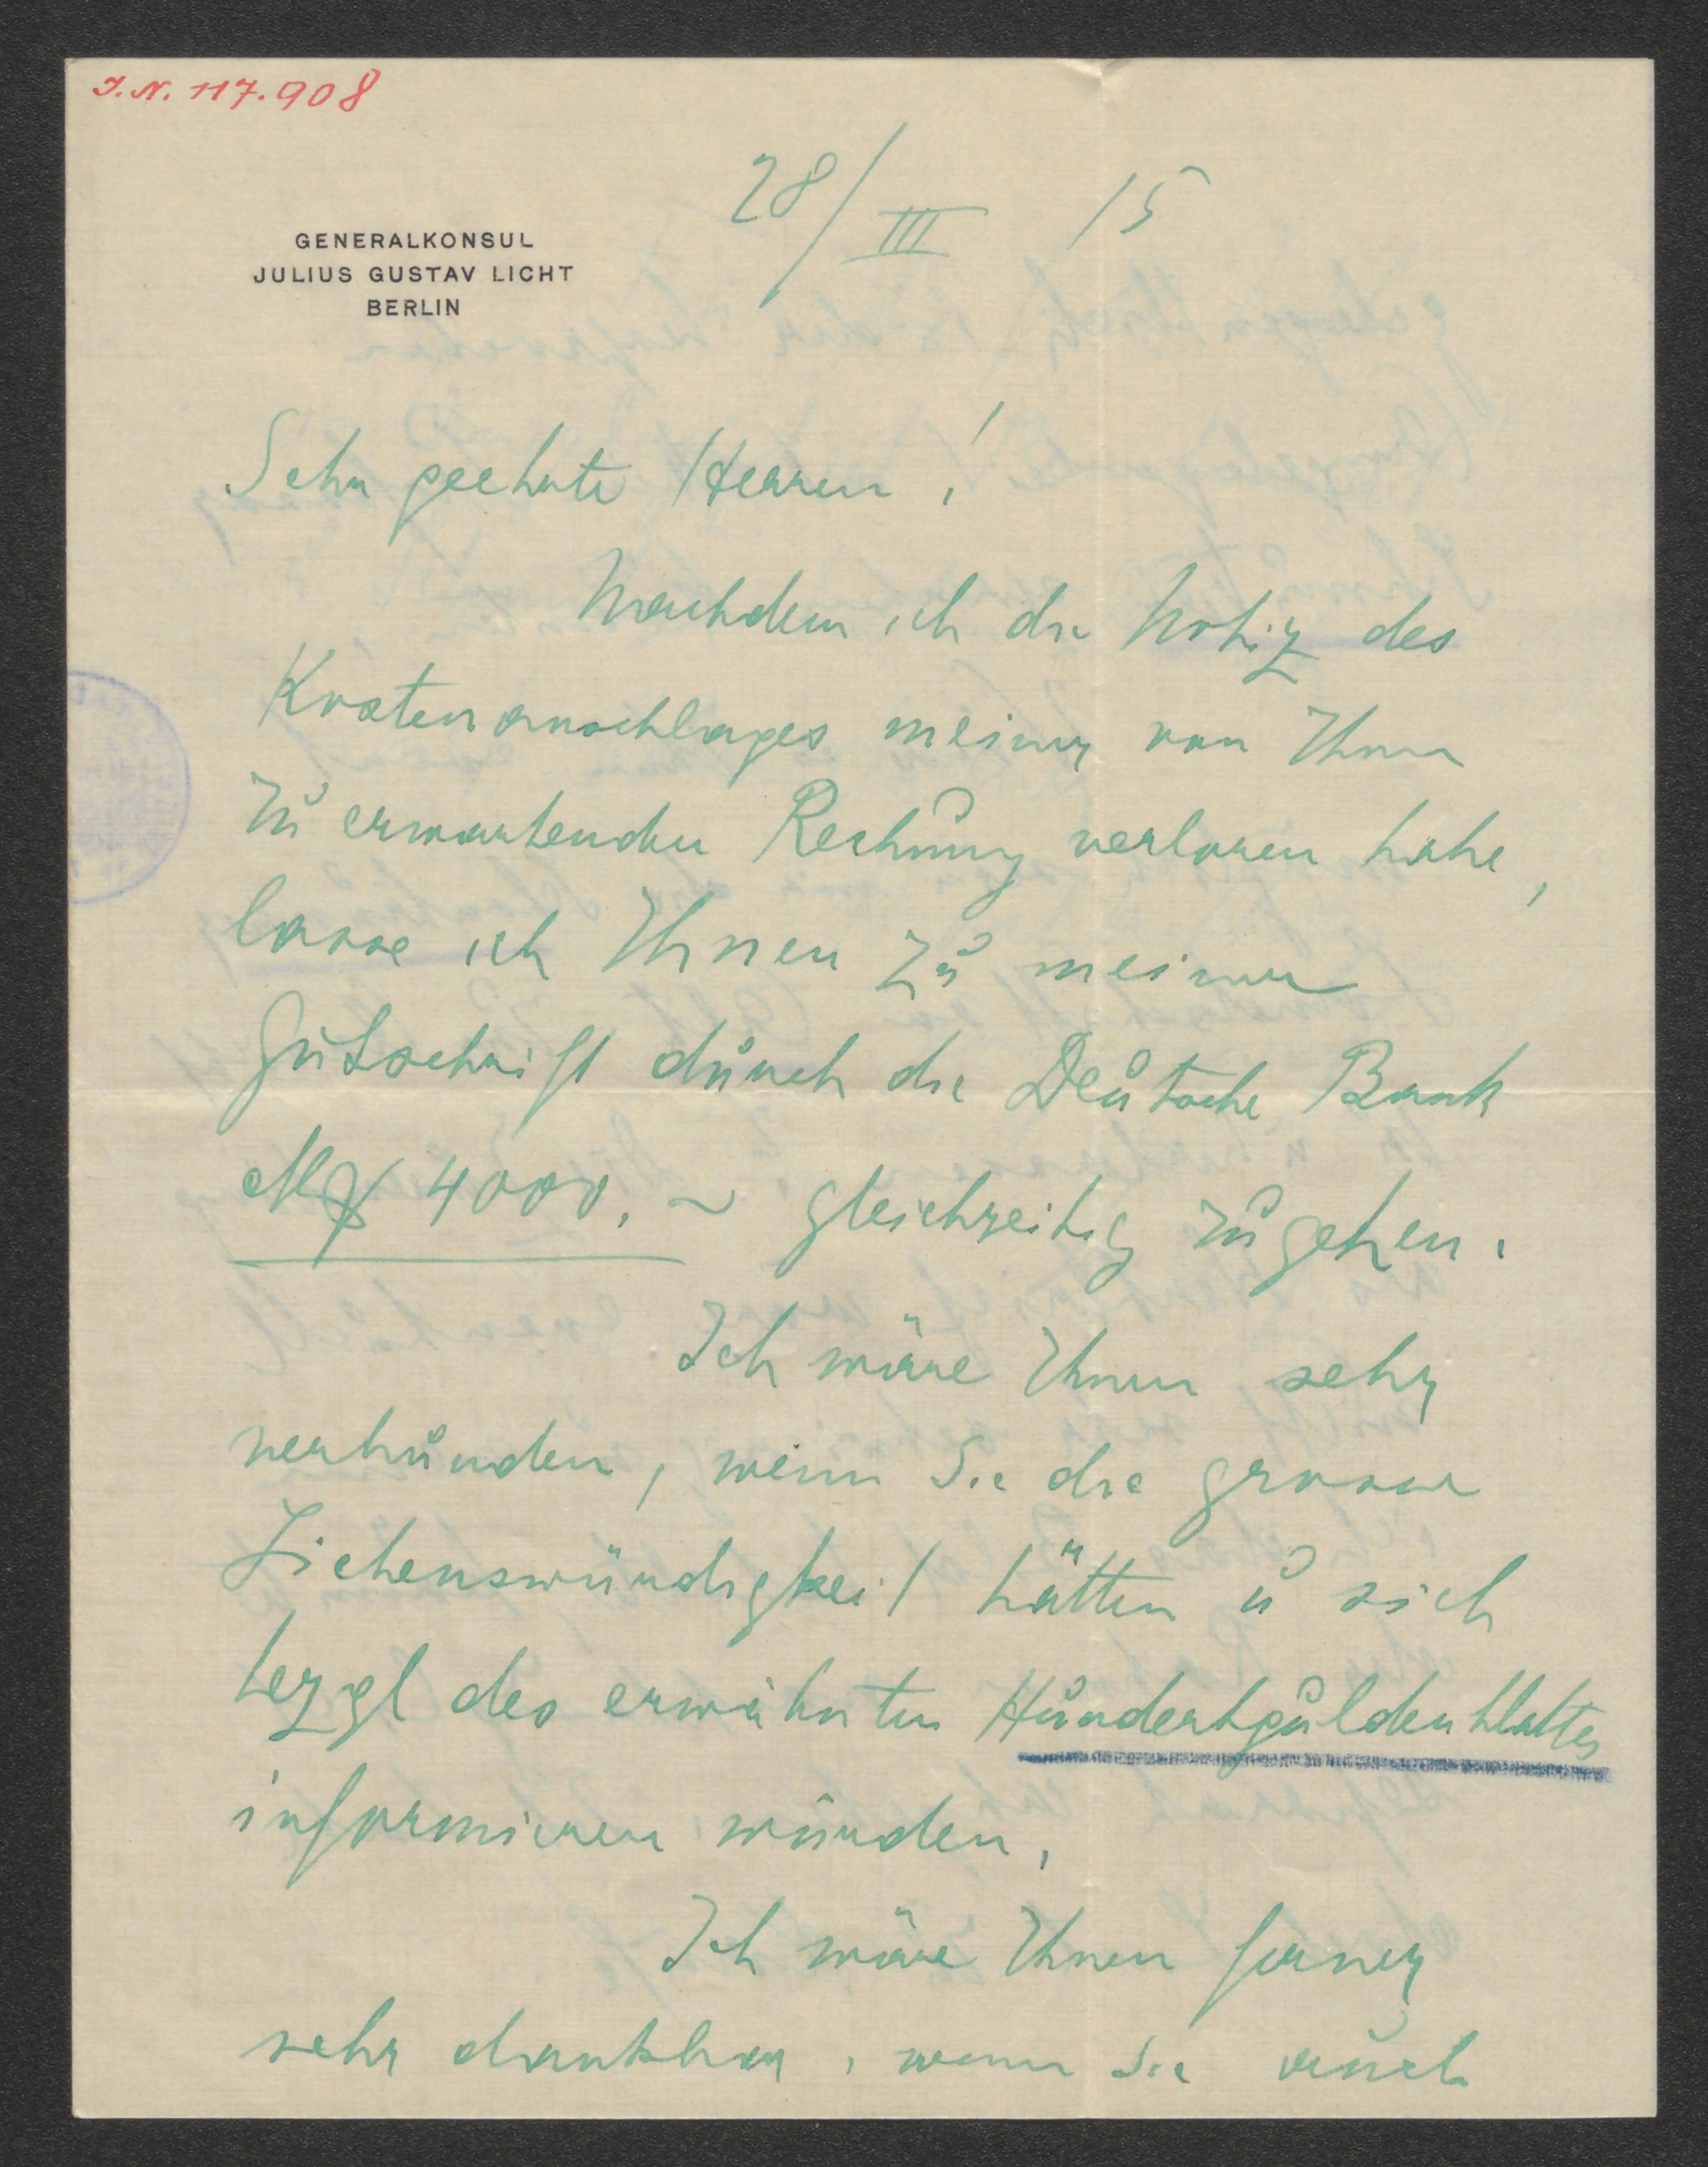 J.N. 117.908
28/III 15
GENERALKONSUL
JULIUS GUSTAV LICHT
BERLIN
Sehr geehrte Herren!
Nachdem ich die Notiz des
Kostenanschlages meiner von Ihnen
zu erwartenden Rechnung verloren habe,
lasse ich Ihnen zu meiner
Gutschrift durch die Deutsche Bank
M 4000.~ gleichzeitig zugehen.
Ich wäre Ihnen sehr
verbunden, wenn Sie die grosse
Liebenswürdigkeit hätten u sich
bezgl des erwähnten Hundertguldenblattes
informieren würden.
Ich wäre Ihnen ferner
sehr dankbar, wenn Sie auch